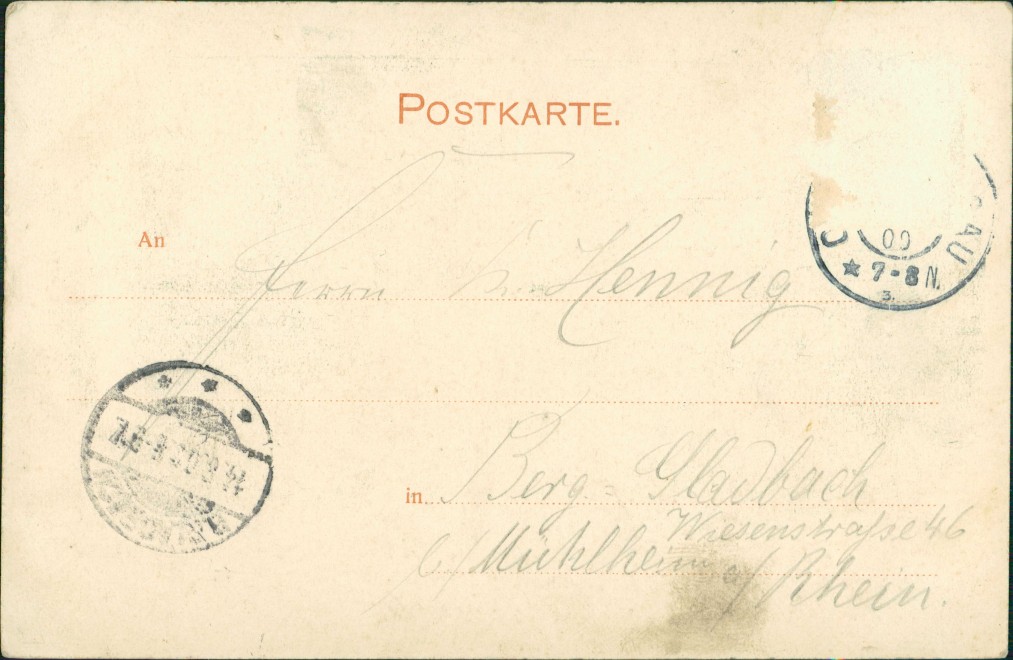 POSTKARTE.
An
Herrn K. Hennig
in Berg-Gladbach
Wiesenstraße 46
b/ Mühlheim a/ Rhein.
C AU
00
7-8 N.
3.